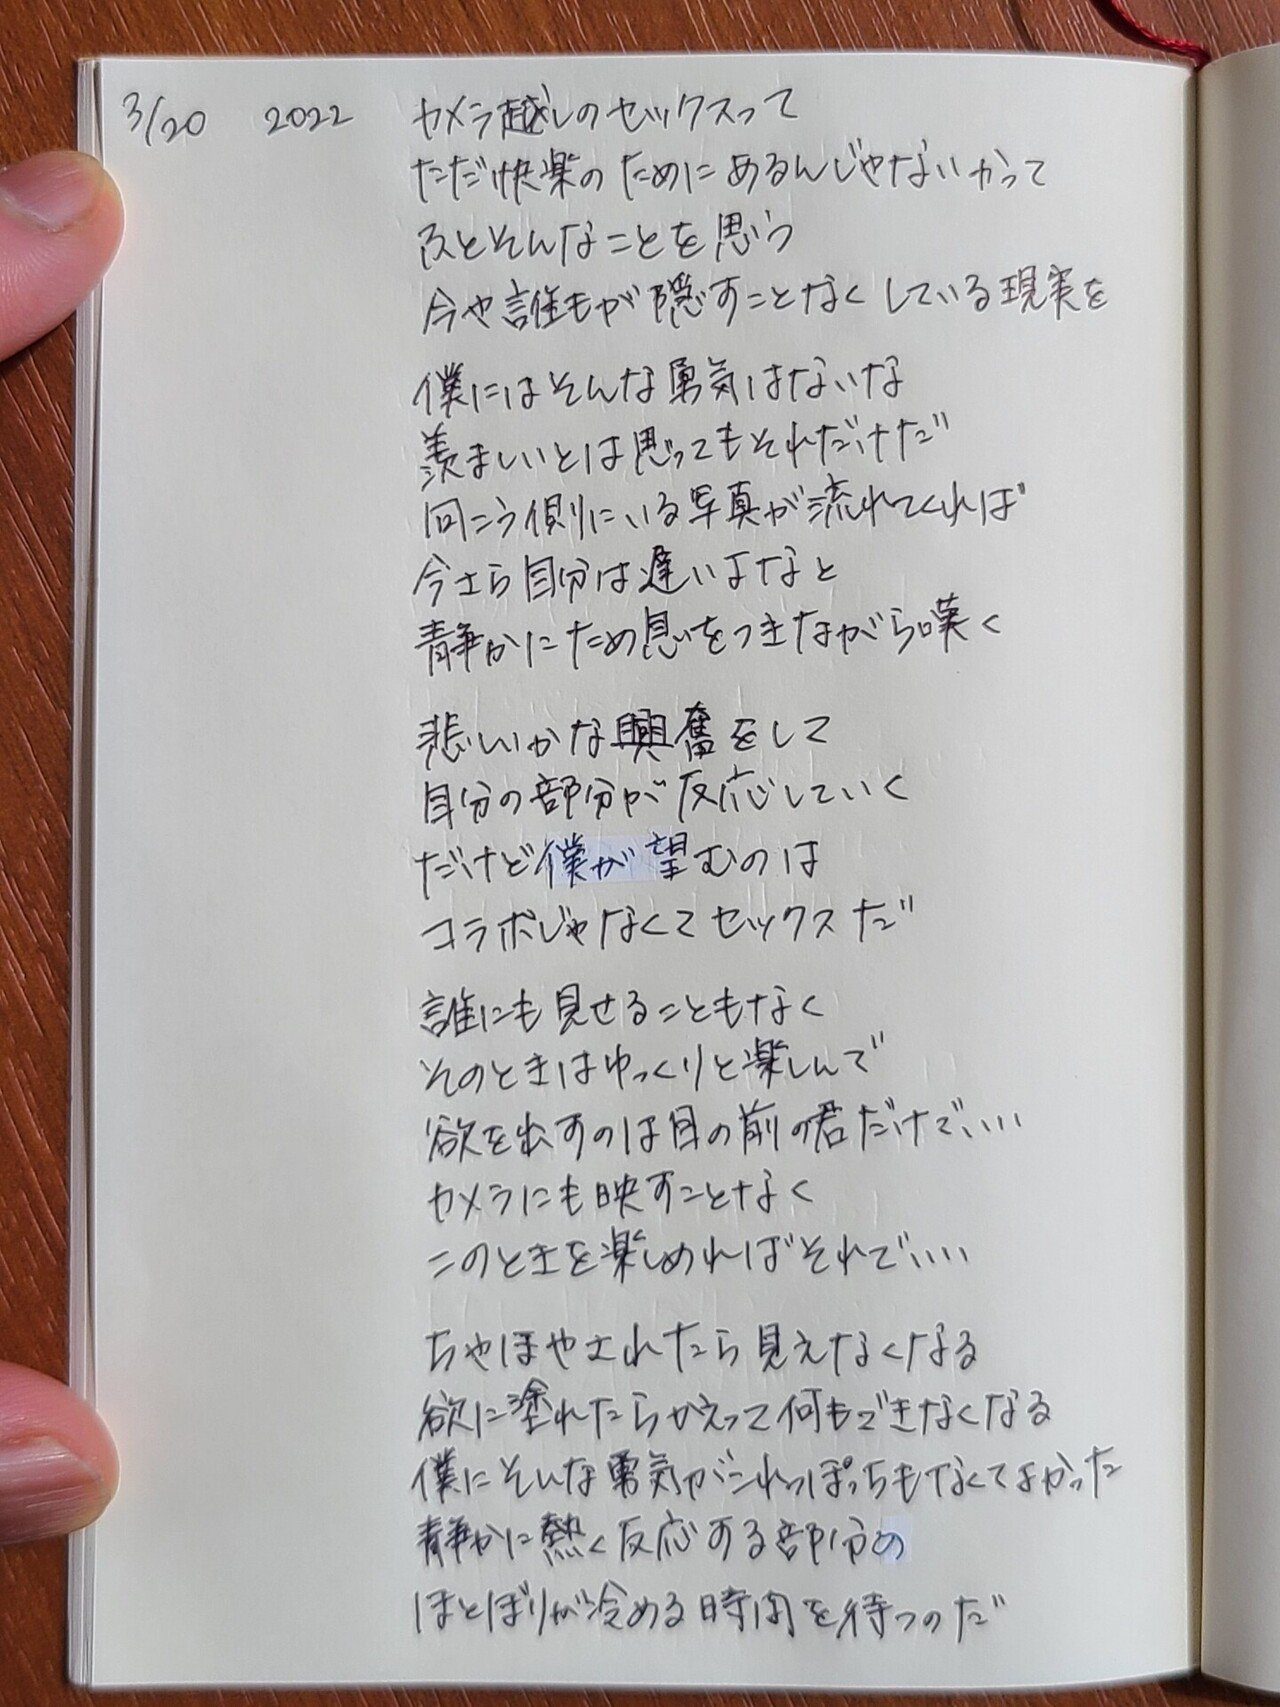 3/20 2022
カメラ越しのセックスって
ただ快楽のためにあるんじゃないかって
ふとそんなことを思う
今や誰もが隠すことなくしている現実を
僕にはそんな勇気はないな
羨ましいとは思ってもそれだけだ
向こう側にいる写真が流れてくれば
今さら自分は遅いよなと
静かにため息をつきながら嘆く
悲しいかな興奮をして
自分の部分が反応していく
だけど僕が望むのは
コラボじゃなくてセックスだ
誰にも見せることもなく
そのときはゆっくりと楽しんで
欲を出すのは目の前の君だけでいい
カメラにも映すことなく
このときを楽しめればそれでいい
ちやほやされたら見えなくなる
欲に塗れたらかえって何もできなくなる
僕にそんな勇気がこれっぽっちもなくてよかった
静かに熱く反応する部分の
ほとぼりが冷める時間を待つのだ